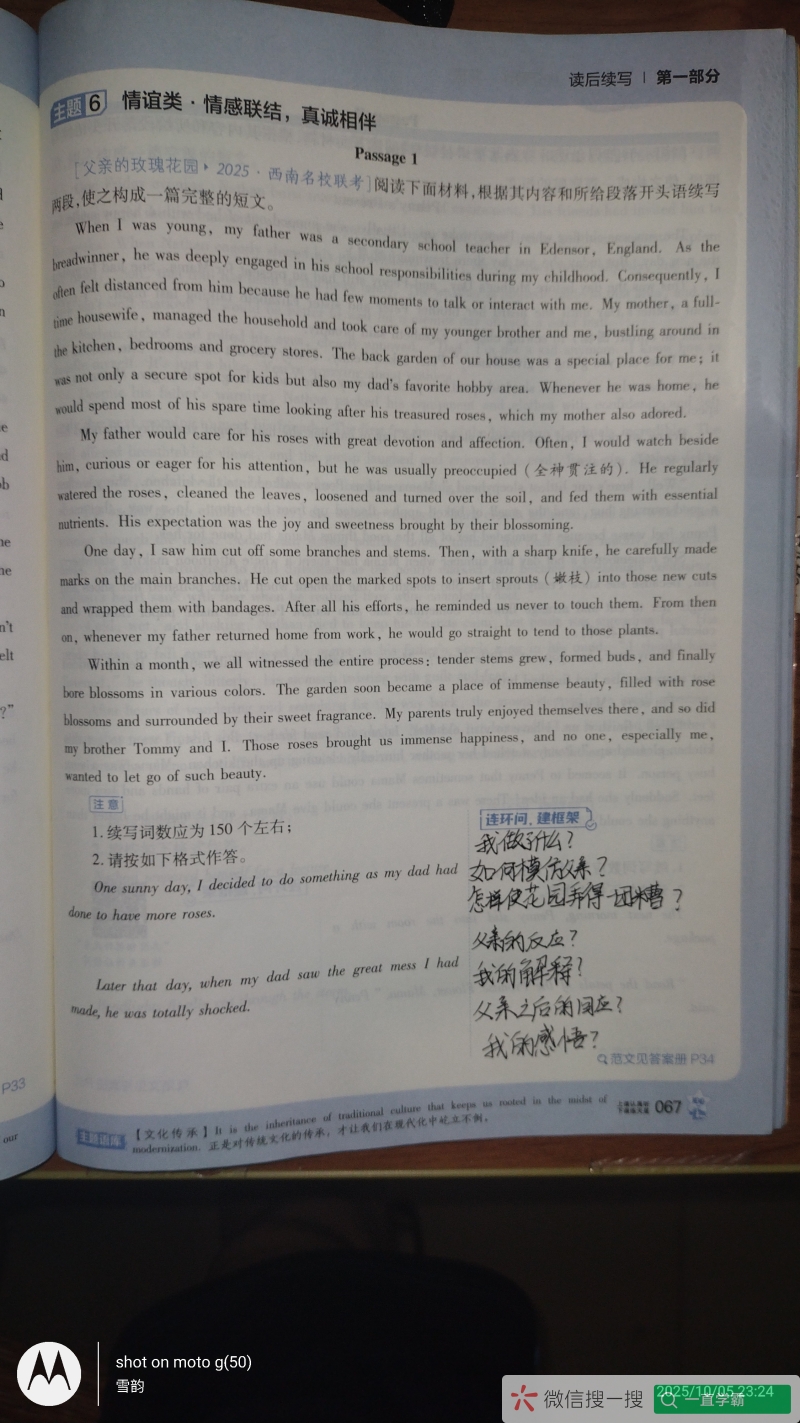 读后续写 | 第一部分
主题6 情谊类·情感联结，真诚相伴
Passage 1
[父亲的玫瑰花园▸2025·西南名校联考]阅读下面材料，根据其内容和所给段落开头语续写
两段，使之构成一篇完整的短文。
When I was young, my father was a secondary school teacher in Edensor, England. As the
breadwinner, he was deeply engaged in his school responsibilities during my childhood. Consequently, I
often felt distanced from him because he had few moments to talk or interact with me. My mother, a full-
time housewife, managed the household and took care of my younger brother and me, bustling around in
the kitchen, bedrooms and grocery stores. The back garden of our house was a special place for me; it
was not only a secure spot for kids but also my dad's favorite hobby area. Whenever he was home, he
would spend most of his spare time looking after his treasured roses, which my mother also adored.
My father would care for his roses with great devotion and affection. Often, I would watch beside
him, curious or eager for his attention, but he was usually preoccupied (全神贯注的). He regularly
watered the roses, cleaned the leaves, loosened and turned over the soil, and fed them with essential
nutrients. His expectation was the joy and sweetness brought by their blossoming.
One day, I saw him cut off some branches and stems. Then, with a sharp knife, he carefully made
marks on the main branches. He cut open the marked spots to insert sprouts (嫩枝) into those new cuts
and wrapped them with bandages. After all his efforts, he reminded us never to touch them. From then
on, whenever my father returned home from work, he would go straight to tend to those plants.
Within a month, we all witnessed the entire process: tender stems grew, formed buds, and finally
bore blossoms in various colors. The garden soon became a place of immense beauty, filled with rose
blossoms and surrounded by their sweet fragrance. My parents truly enjoyed themselves there, and so did
my brother Tommy and I. Those roses brought us immense happiness, and no one, especially me,
wanted to let go of such beauty.
注意
1.续写词数应为150个左右；
2.请按如下格式作答。
One sunny day, I decided to do something as my dad had
done to have more roses.
Later that day, when my dad saw the great mess I had
made, he was totally shocked.
连环问，建框架
我做了什么？
如何模仿父亲？
怎样使花园弄得一团糟？
父亲的反应？
我的解释？
父亲之后的回应？
我的感悟？
范文见答案册 P34
P33
067
【文化传承】It is the inheritance of traditional culture that keeps us rooted in the midst of
modernization. 正是对传统文化的传承，才让我们在现代化中屹立不倒。
our
shot on moto g(50)
雪韵
微信搜一搜
一直学霸
2025/10/05 23:24